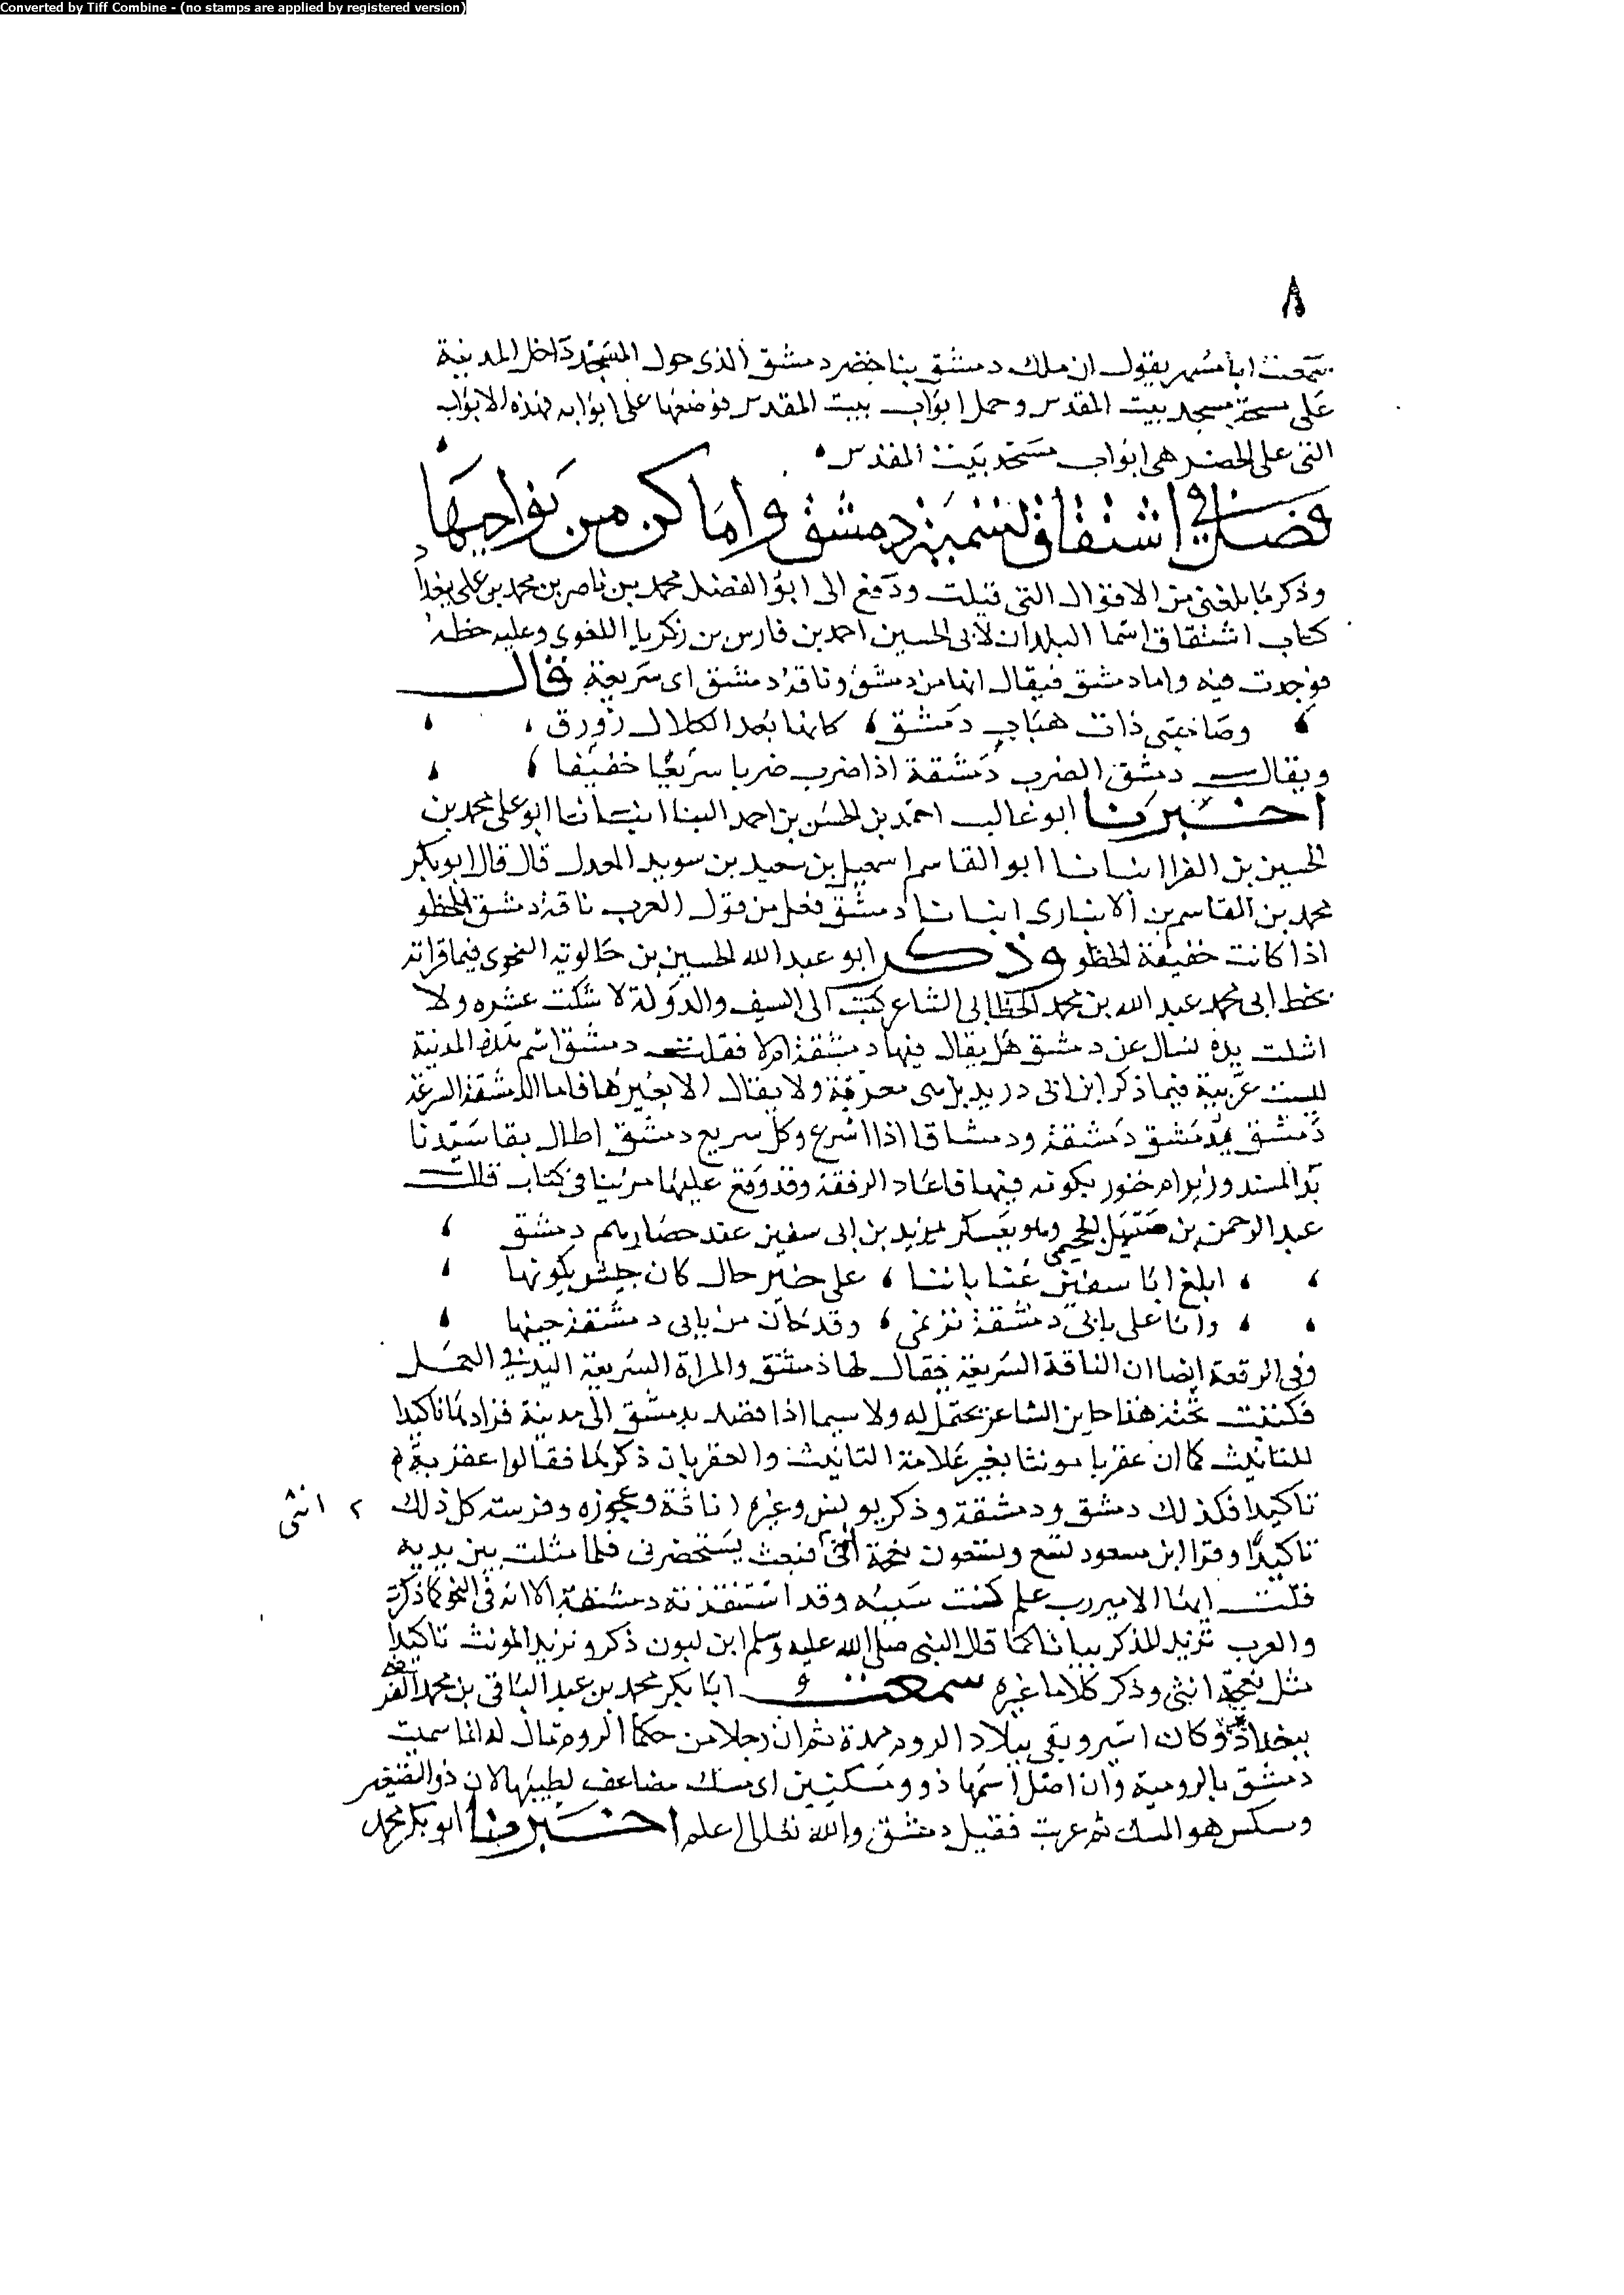 Converted by Tiff Combine - (no stamps are applied by registered version)
٨
سمعت ابا مسهر يقول ان ملك دمشق بنا خضر دمشق الذى حول المسجد داخل المدينة
على مسحة مسجد بيت المقدس وحمل ابواب بيت المقدس فوضعها على ابوابه فهذه الابواب
التى على الخضر هى ابواب مسجد بيت المقدس
فصل فى اشتقاق تسمية دمشق واماكن من نواحيها
وذكر ما بلغنى من الاقوال التى قيلت ودفع الى ابو الفضل محمد بن ناصر بن محمد بن على ببغداد
كتاب اشتقاق اسما البلدان لابى الحسين احمد بن فارس بن زكريا اللغوى وعليه خطه
فوجدت فيه واما دمشق فيقال انها من دمشق وناقة دمشق اى سريعة قال
وصاحبتى ذات هباب دمشق كانها بعد الكلال زورق
ويقال دمشق الضرب دمشقة اذا ضرب ضربا سريعا خفيفا
اخبرنا ابو غالب احمد بن الحسن بن احمد البنا انبانا ابو على محمد بن
الحسين بن الفرا انبانا ابو القاسم اسمعيل بن سعيد بن سويد المعدل قال قال ابو بكر
محمد بن القاسم بن الانبارى انبانا دمشق فعل من قول العرب ناقة دمشق الخطو
اذا كانت خفيفة الخطو وذكر ابو عبد الله الحسين بن خالويه النحوى فيما قراته
بخط ابى محمد عبد الله بن محمد الخطابى الشاعر كتب الى السيف والدولة لا شكت عشره ولا
اشلت يده نسال عن دمشق هل يقال فيها دمشقة ام لا فقلت دمشق اسم هذه المدينة
ليست عربية فيما ذكر ابن ابى دريد بل هى معربة ولا يقال الا بغيرها فاما الدمشقة السرعة
دمشق يدمشق دمشقة ودمشاقا اذا اسرع وكل سريع دمشق اطال بقا سيدنا
المسند وزير ام خنور بكونه فيها فاعاد الرفقة وقد وقع عليها مر بنا فى كتاب قلت
عبد الرحمن بن حنبل الجمحى وهو بعسكر يزيد بن ابى سفين عند حصارهم دمشق
ابلغ ابا سفين عنا باننا على خير حال كان جيش يكونها
وانا على بابى دمشقة نرتمى وقد حان من بابى دمشقة حينها
وفى الرقعة ايضا ان الناقة السريعة يقال لها دمشق والمراة السريعة اليدين فى العمل
فكتبت تحته هذا جاين الشاعر يحتمل له ولا سيما اذا قصد بدمشق الى مدينة فزاد ها تاكيدا
للتانيث كما ان عقربا مونثا بغير علامة التانيث والعقربان ذكرها فقالوا عقربة
تاكيدا فكذلك دمشق ودمشقة وذكر يونس وغيره ناقة وعجوزه وفرسته كل ذلك
انثى
تاكيدا وقرا ابن مسعود تسع وتسعون نعجة انثى فبعث يستحضرنى فلما مثلت بين يديه
قلت ايها الامير رب علم كنت سببه وقد استنفذته دمشقة الا انه فى النحو كما ذكرته
والعرب تزيد للمذكر بيانا كما قال النبى صلى الله عليه وسلم ابن لبون ذكر وتزيد المونث تاكيدا
مثل نعجة انثى وذكر كلاما غيره سمعت ابا بكر محمد بن عبد الباقى بن محمد
ببغداد وكان اسر وبقى ببلاد الروم مدة ثم ان رجلا من حكما الروم قال له انما سميت
دمشق بالرومية وان اصل اسمها ذو ومسكس اى مسك مضاعف لطيبها لان ذو التضعيف
ومسكس هو المسك ثم عربت فقيل دمشق والله تعالى اعلم اخبرنا ابو بكر محمد